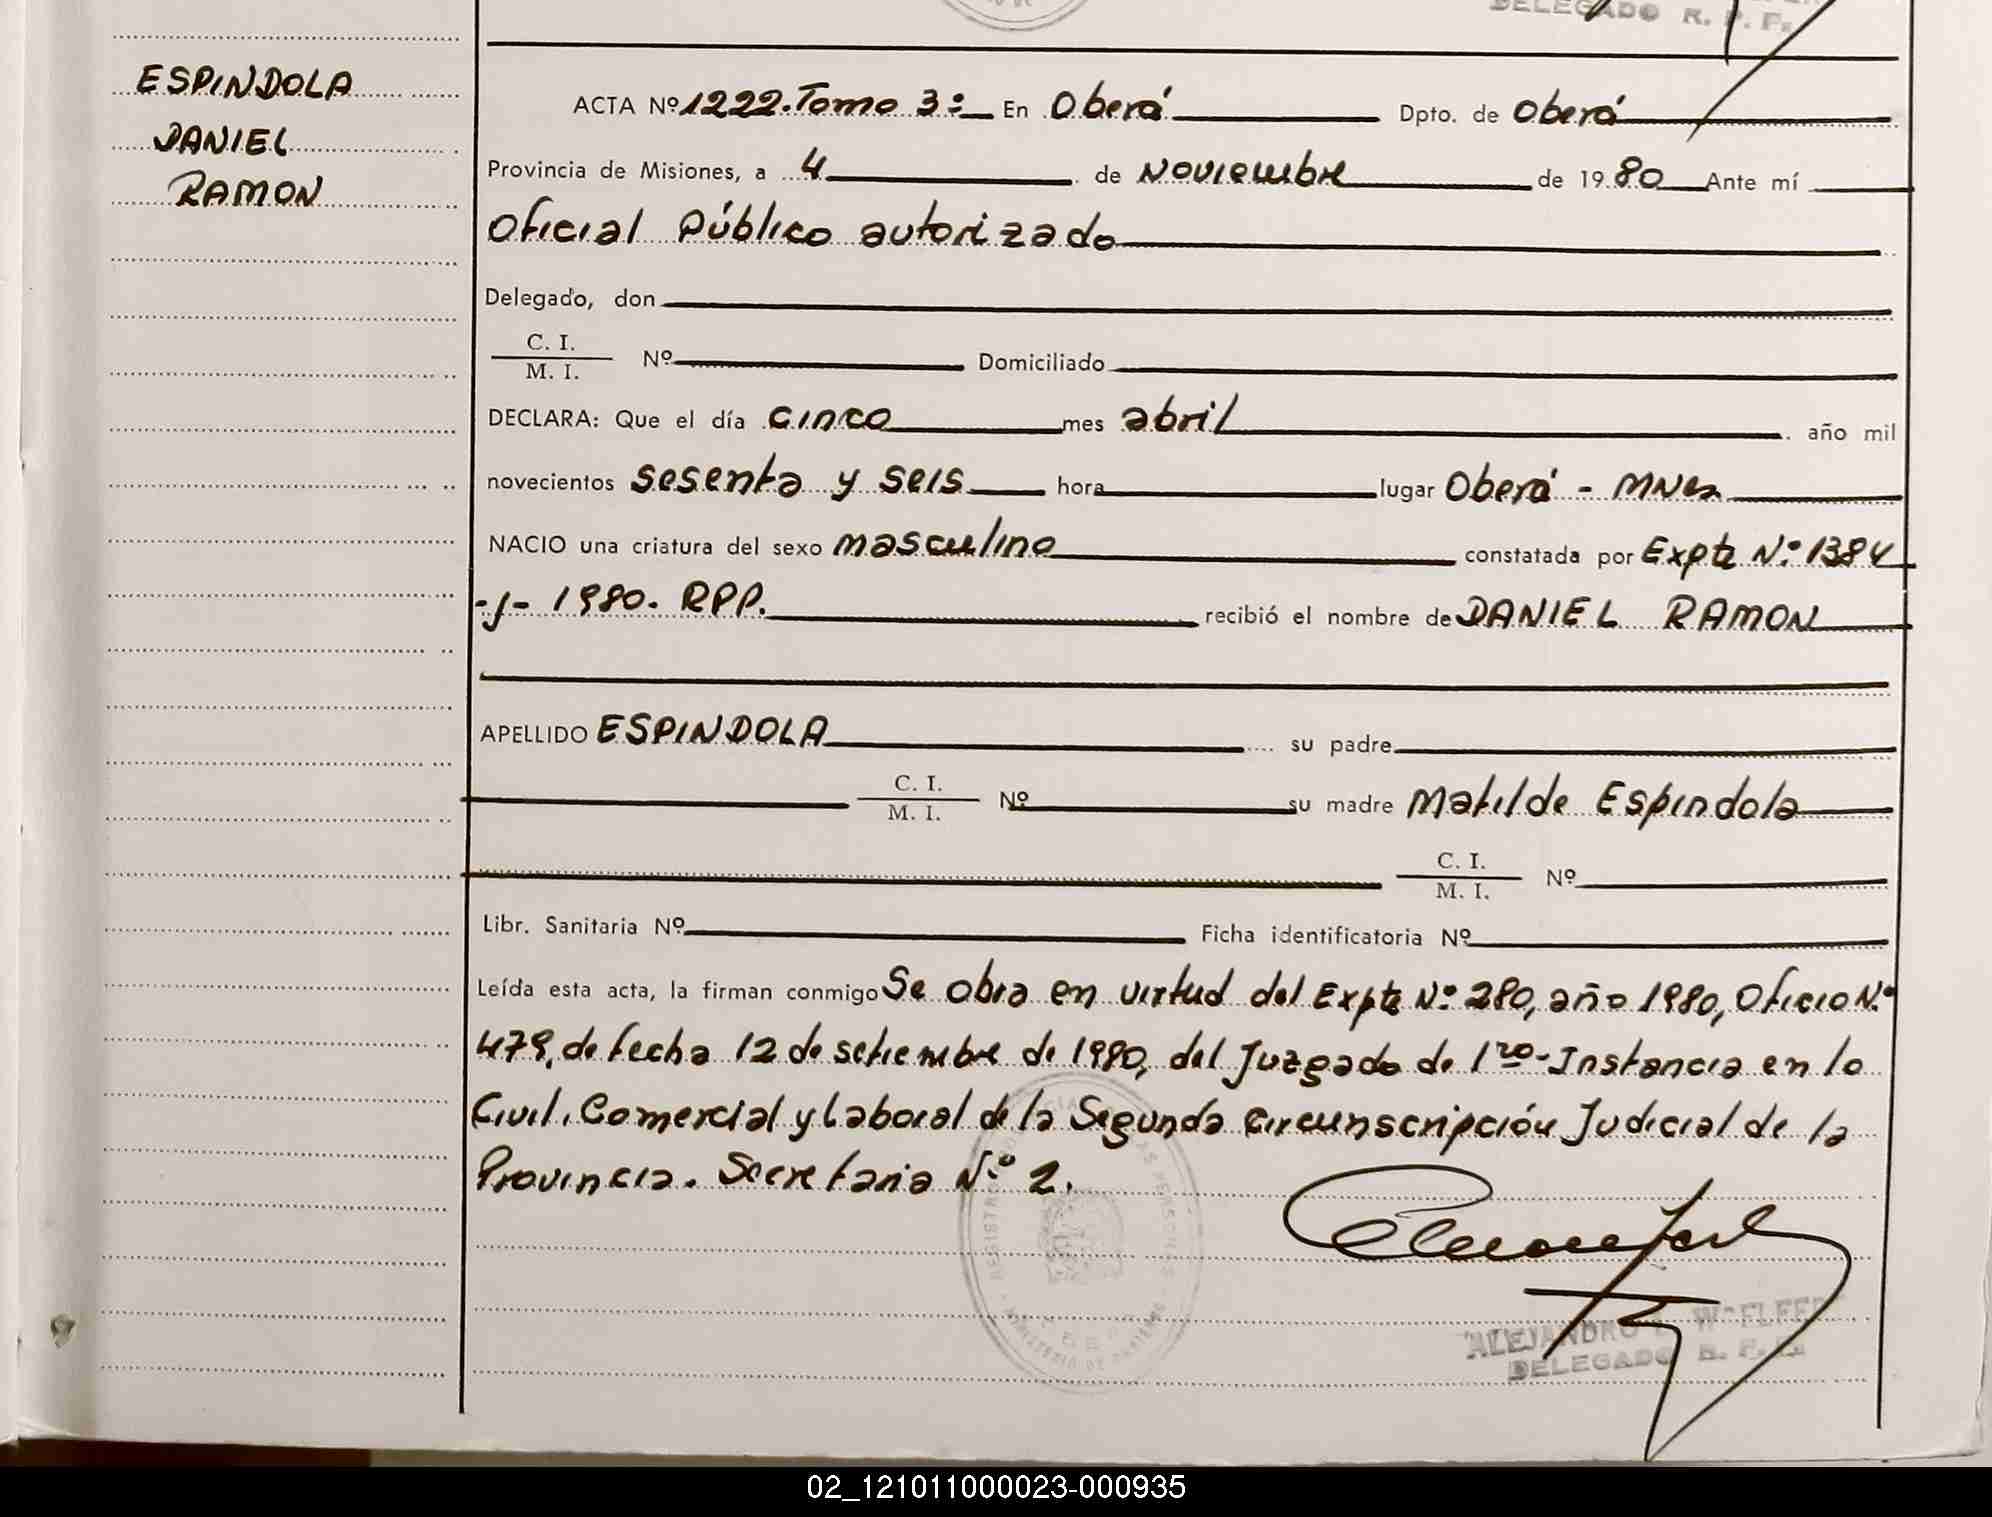 DELEGADO R. P. P.
ESPINDOLA
DANIEL
RAMON
ACTA Nº 1222. Tomo 3º En Oberá Dpto. de Oberá
Provincia de Misiones, a 4 de Noviembre de 1980 Ante mí
Oficial Público autorizado
Delegado, don
C. I.
M. I.
Nº Domiciliado
DECLARA: Que el día cinco mes abril año mil
novecientos sesenta y seis hora lugar Oberá - MNES
NACIO una criatura del sexo masculino constatada por Expte Nº 1384
-J- 1980. RPP. recibió el nombre de DANIEL RAMON
APELLIDO ESPINDOLA su padre
C. I.
M. I.
Nº su madre Matilde Espindola
C. I.
M. I.
Nº
Libr. Sanitaria Nº Ficha identificatoria Nº
Leída esta acta, la firman conmigo Se obra en virtud del Expte Nº 280, año 1980, Oficio Nº
479, de fecha 12 de setiembre de 1980, del Juzgado de 1ra - Instancia en lo
Civil, Comercial y Laboral de la Segunda Circunscripción Judicial de la
Provincia. Secretaria Nº 2.
ALEJANDRO
DELEGADO R. P. P.
02_121011000023-000935